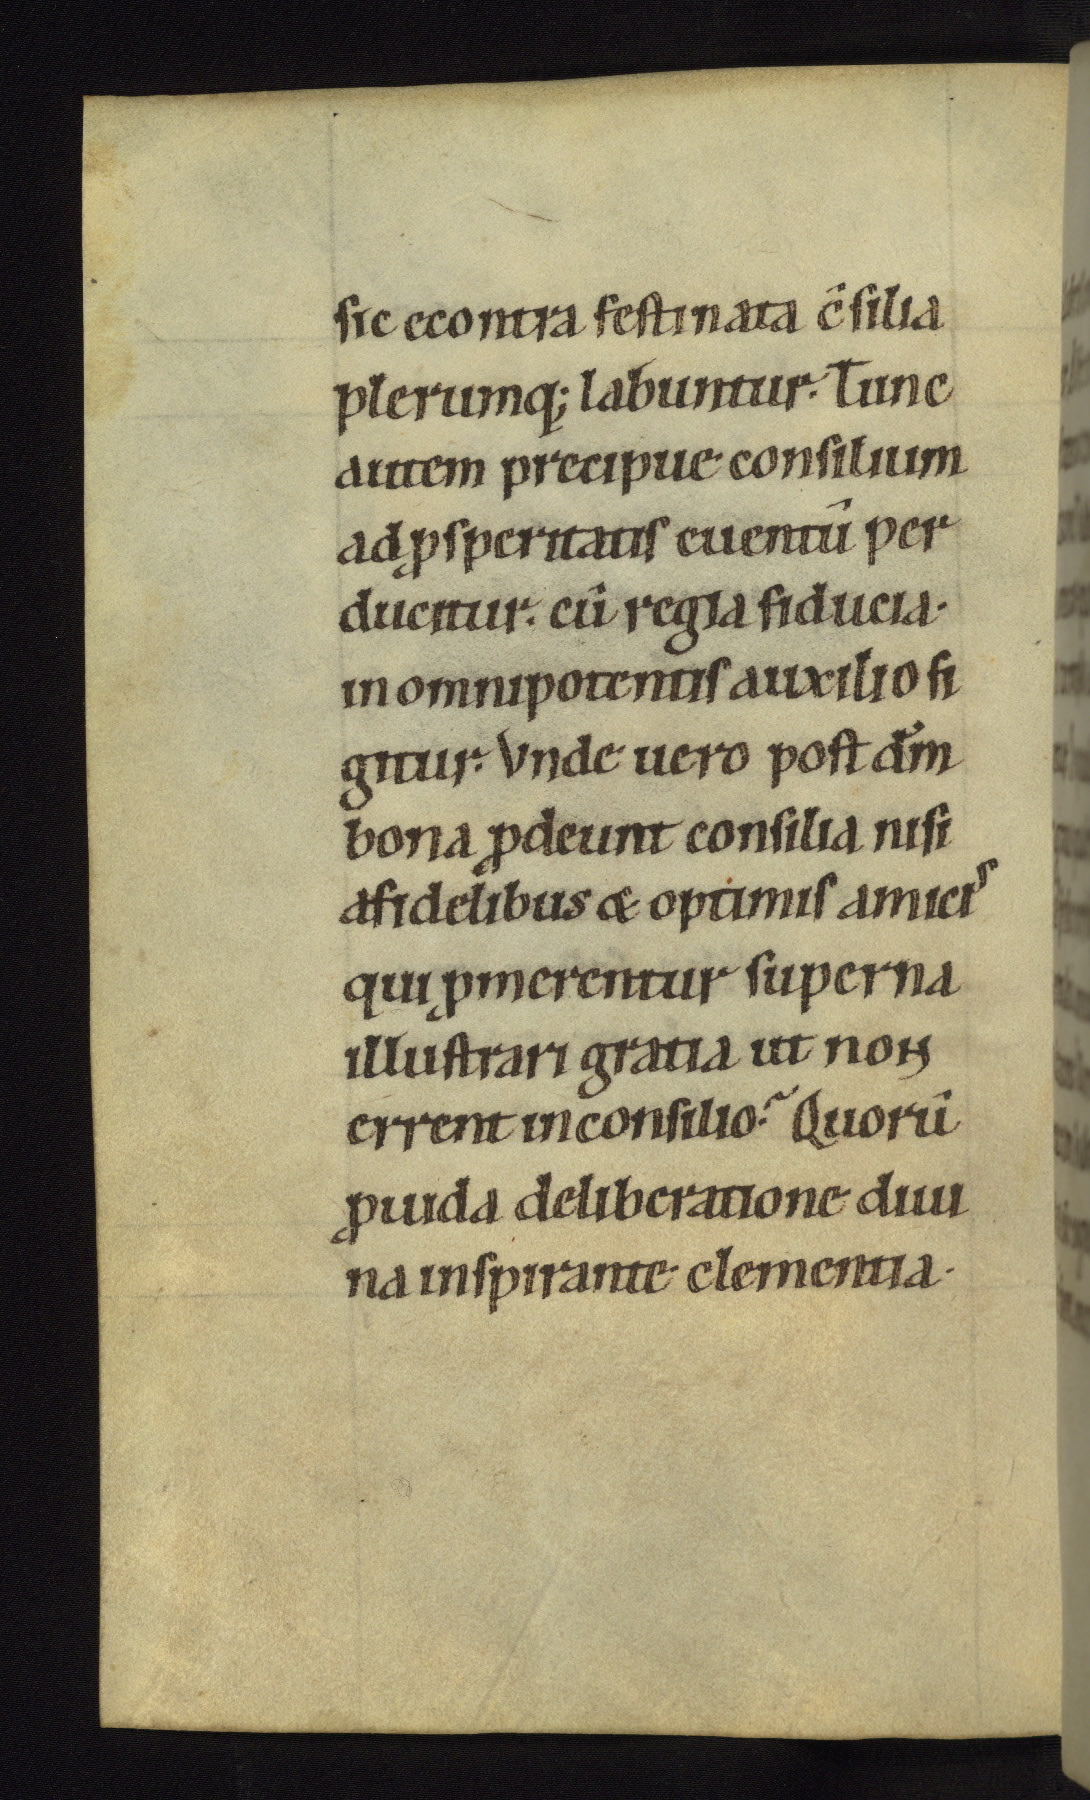 sic econtra festinata c̄silia
plerumq; labuntur. Tunc
autem precipue consilium
ad ꝓsperitatis euentū per
ducitur. cū regia fiducia.
in omnipotentis auxilio fi
gitur. Vnde uero post dm̄
bona ꝓdeunt consilia nisi
a fidelibus & optimis amicis
qui ꝓmerentur superna
illustrari gratia ut non
errent in consilio? Quorū
ꝓuida deliberatione diui
na inspirante clementia.